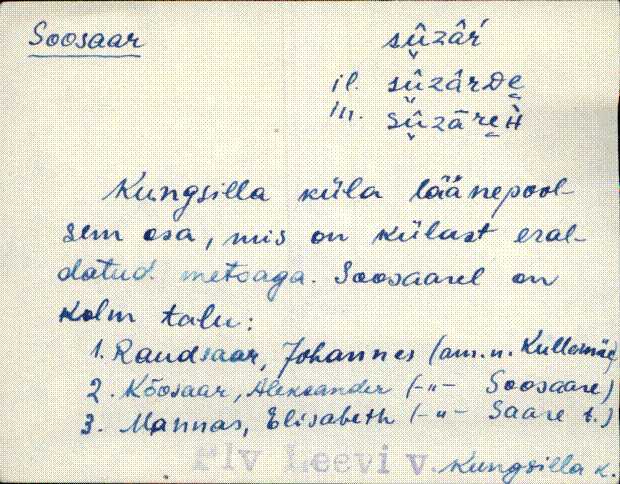 Soosaar sû̬zâŕ
il. sû̬zârDe̬
in. sû̬zāre̬ǸH
Kungsilla küla läänepool-
sem osa, mis on külast eral-
datud metsaga. Soosaarel on
kolm talu:
1. Raudsaar, Johannes (am.n. Kullamäe)
2. Kõosaar, Aleksander (-"- Soosaare)
3. Mannas, Elisabeth (-"- Saare t.)
Plv Leevi v. Kungsilla k.